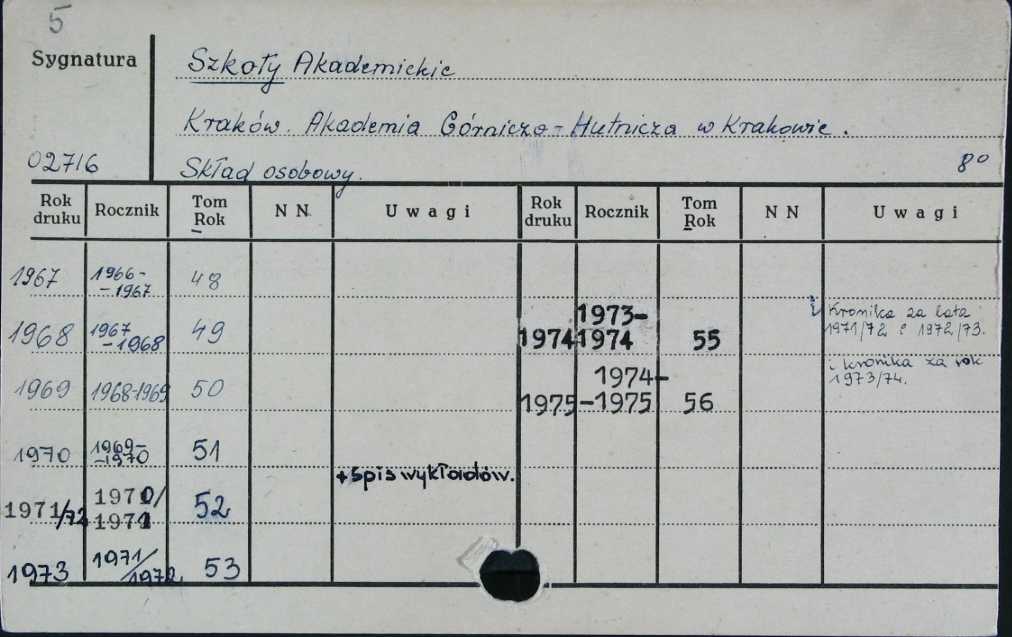 5
Sygnatura
Szkoły Akademickie
Kraków. Akademia Górniczo-Hutnicza w Krakowie.
02716
Skład osobowy.
8°
Rok druku Rocznik Tom Rok N N U w a g i Rok druku Rocznik Tom Rok N N U w a g i
1967 1966--1967 48
1968 1967-1968 49
1974 1973-1974 55 i Kronika za lata 1971/72 i 1972/73.
1969 1968-1969 50
1975 1974--1975 56 i kronika za rok 1973/74.
1970 1969--1970 51
+ spis wykładów.
1971/72 1970/1971 52
1973 1971/1972 53